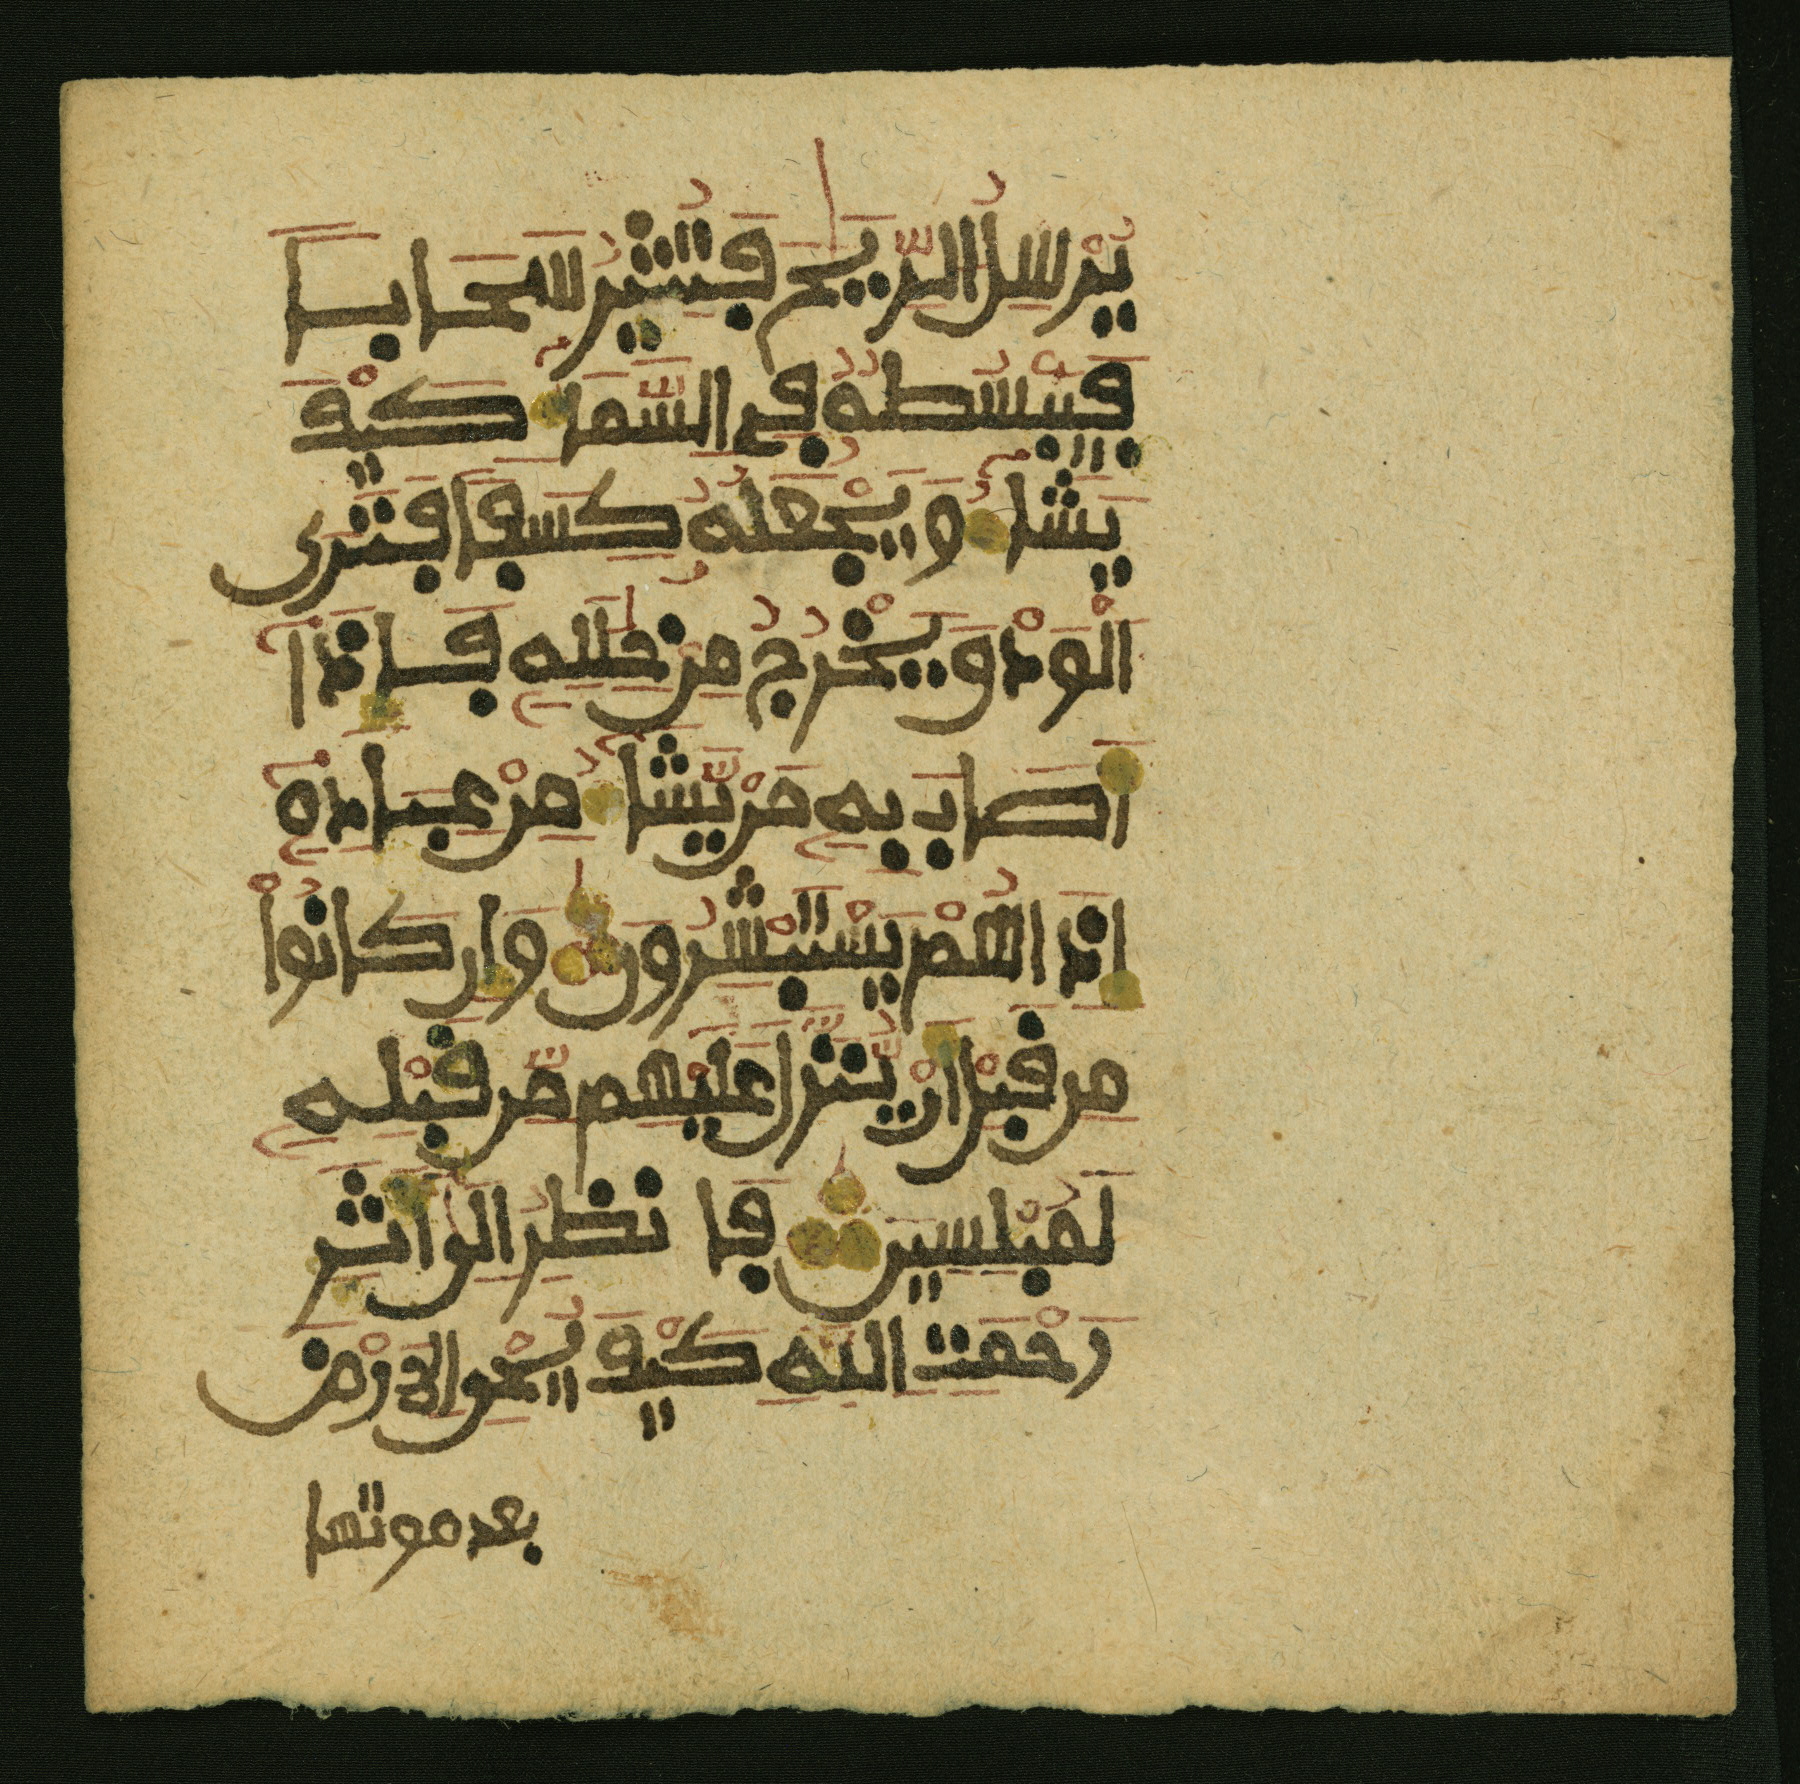 يُرْسِلُ الرِّيَٰحَ فَتُثِيرُ سَحَابًا
فَيَبْسُطُهُ فِي السَّمَاءِ كَيْفَ
يَشَاءُ وَيَجْعَلُهُ كِسَفًا فَتَرَى
الْوَدْقَ يَخْرُجُ مِنْ خِلَٰلِهِ فَإِذَا
أَصَابَ بِهِ مَنْ يَّشَاءُ مِنْ عِبَادِهِ
إِذَا هُمْ يَسْتَبْشِرُونَ وَإِن كَانُواْ
مِن قَبْلِ أَنْ يُّنَزَّلَ عَلَيْهِم مِّن قَبْلِهِ
لَمُبْلِسِينَ فَانظُرِ الَى أَثَرِ
رَحْمَتِ اللَّهِ كَيْفَ يُحْيِ الَارْضَ
بعد موتها